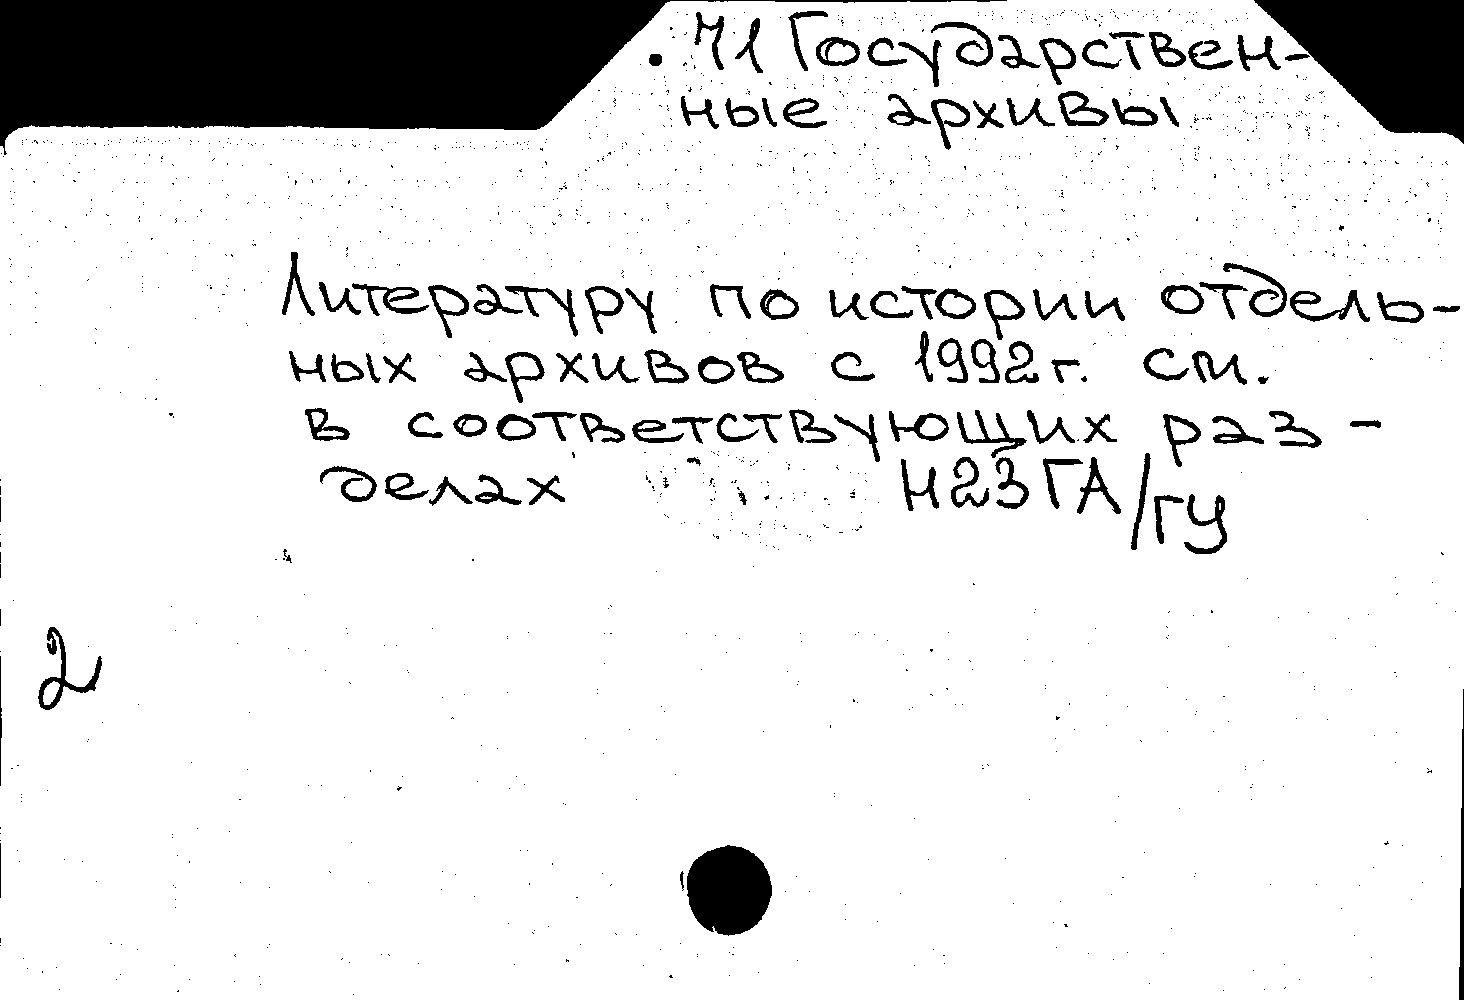 .71 Государствен-
ные архивы
Литературу по истории отдель-
ных архивов с 1992г. см.
в соответствующих раз-
делах Н23ГА/ГУ
2